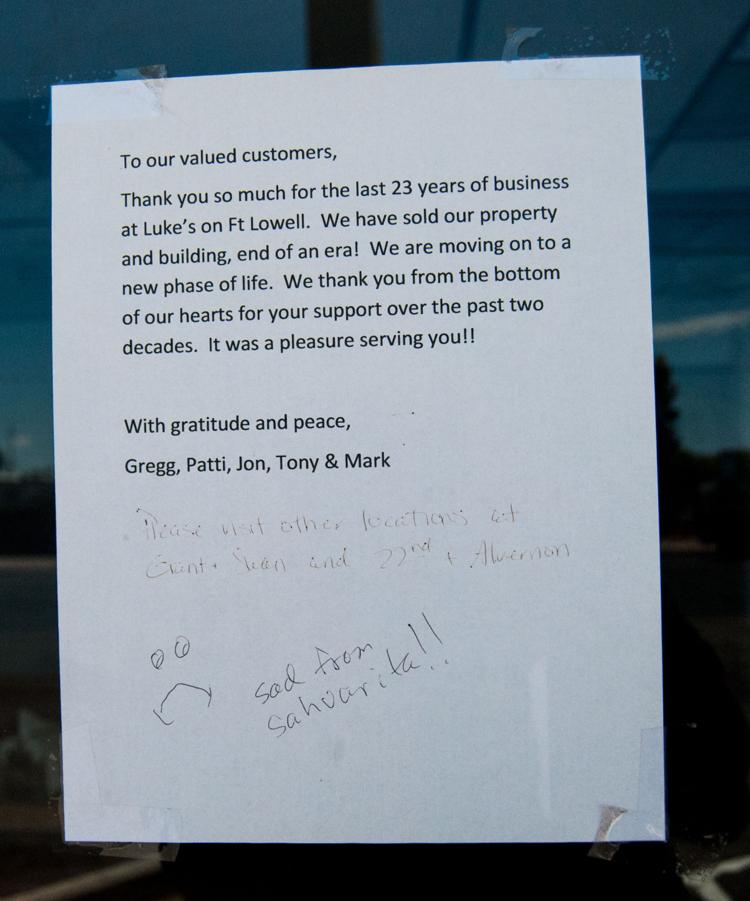 To our valued customers,
Thank you so much for the last 23 years of business
at Luke's on Ft Lowell. We have sold our property
and building, end of an era! We are moving on to a
new phase of life. We thank you from the bottom
of our hearts for your support over the past two
decades. It was a pleasure serving you!!
With gratitude and peace,
Gregg, Patti, Jon, Tony & Mark
Please visit other locations at
Grant + Swan and 22nd + Alvernon
sad from
sahuarita!!